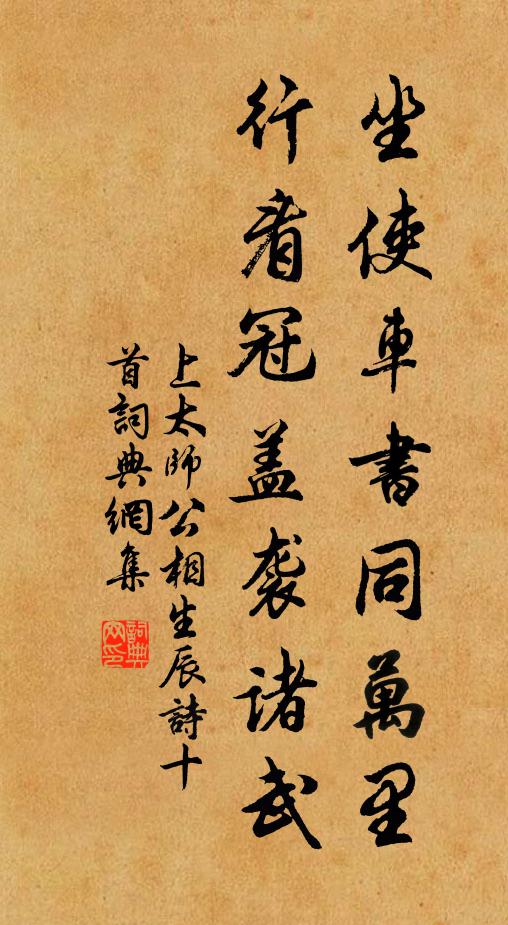 坐使車書同萬里
行看冠蓋襲諸武
上太師公相生辰詩十
首詞典網集
詞典
网印